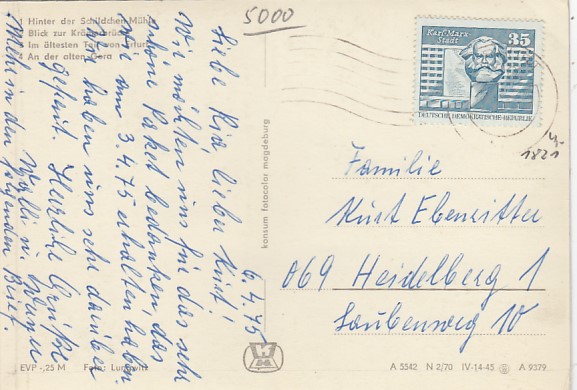 Hinter der Schildchen Mühle
Blick zur Krämerbrücke
Im ältesten Teil von Erfurt
An der alten Gera
5000
Karl-Marx-
Stadt
35
DEUTSCHE DEMOKRATISCHE REPUBLIK
1821
6.4.75
Liebe Ria lieber Kurt!
Wir möchten uns für das sehr
schöne Paket bedanken, das
wir am 3.4.75 erhalten haben.
Wir haben uns sehr darüber
gefreut. Herzliche Grüße
Mehr in den folgenden Brief.
konsum fotocolor magdeburg
Familie
Kurt Ebenritter
069 Heidelberg 1
Laubenweg 10
EVP -,25 M Foto:
A 5542 N 2/70 IV-14-45 A 9379